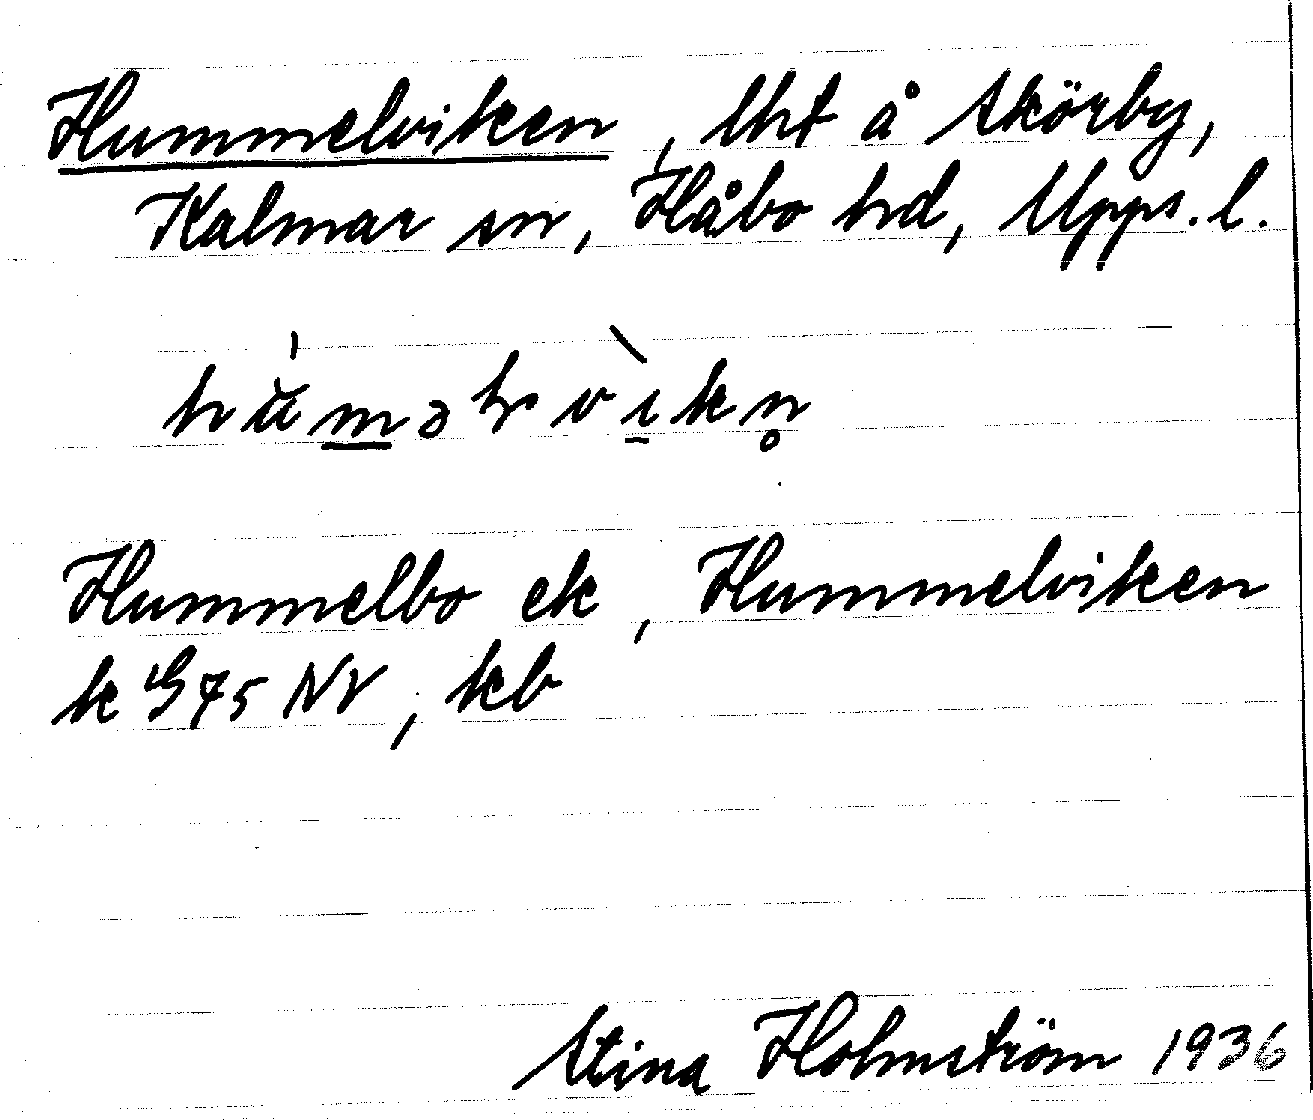 Hummelviken, lht å Skörby,
Kalmar sn, Håbo hd, Upps. l.
Hummelbo ek, Hummelviken
k G75 NV, kb
Stina Holmström 1936